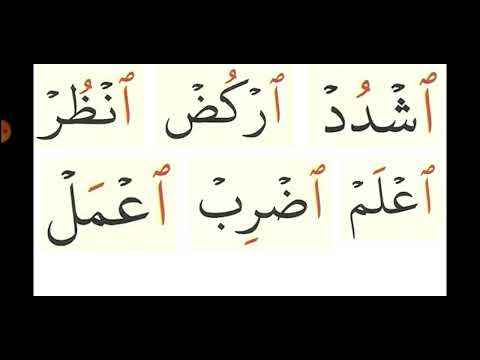 ٱشۡدُدۡ ٱرۡكُضۡ ٱنۡظُرۡ
ٱعۡلَمۡ ٱضۡرِبۡ ٱعۡمَلۡ